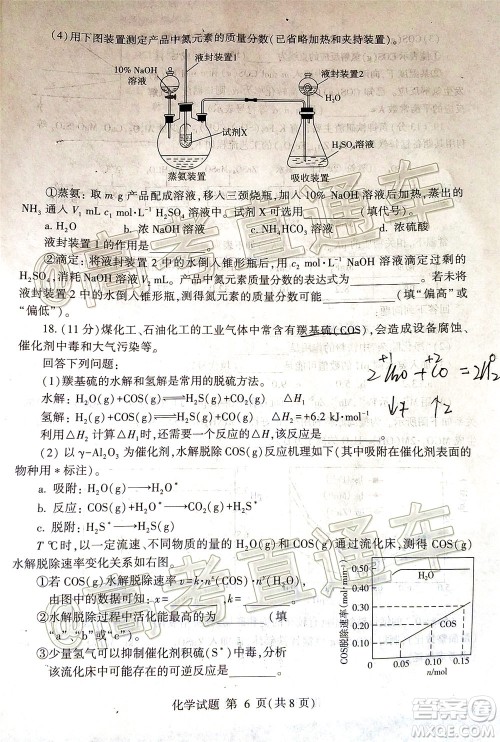 (4)用下图装置测定产品中氮元素的质量分数(已省略加热和夹持装置)。
液封装置1
10% NaOH
溶液
液封装置2
H₂O
试剂X
H₂SO₄
溶液
蒸氨装置
吸收装置
①蒸氨:取 m g 产品配成溶液,移入三颈烧瓶,加入 10% NaOH 溶液后加热,蒸出的
NH₃ 通入 V₁ mL c₁ mol·L⁻¹ H₂SO₄ 溶液中。试剂 X 可选用 (填代号)。
a. H₂O b. 浓 NaOH 溶液 c. NH₄HCO₃ 溶液 d. 浓硫酸
液封装置 1 的作用是 。
②滴定:将液封装置 2 中的水倒入锥形瓶后,用 mol·L⁻¹ NaOH 溶液滴定过剩的
H₂SO₄,消耗 NaOH 溶液 mL。产品中氮的质量分数的表达式为 。若未将
液封装置 2 中的水倒入锥形瓶,测得氮元素的质量分数可能 (填“偏高”或
“偏低”)。
18. (11 分)煤化工、石油化工的工业气体中常含有羰基硫(COS),会造成设备腐蚀、
催化剂中毒和大气污染等。
回答下列问题:
(1)羰基硫的水解和氢解是常用的脱硫方法。
水解:H₂O(g)+COS(g)⇌H₂S(g)+CO₂(g) ΔH₁
氢解:H₂(g)+COS(g)⇌H₂S(g)+CO(g) ΔH₂=+6.2 kJ·mol⁻¹
利用 ΔH₂ 计算 ΔH₁ 时,还需要利用 反应的 ΔH,该反应是 。
(2)以 γ-Al₂O₃ 为催化剂,水解脱除 COS(g)反应机理如下(其中吸附在催化剂表面的
物种用 * 标注)。
a. 吸附:H₂O(g)⟶H₂O*
b. 反应:H₂O*+COS(g)⟶CO₂(g)+H₂S*
c. 脱附:H₂S*⟶H₂S(g)
T ℃时,以一定流速、不同物质的量的 H₂O(g)和 COS(g)通过流化床,测得 COS(g)
水解脱除速率变化关系如右图。
①若 COS(g)水解脱除速率 v=k·nᵃ(H₂O)·nᵇ(COS),
由图中数据可知:a= ,b= 。
②水解脱除过程中活化能最高的为 (填
“a”、“b”或“c”)。
③少量氢气可以抑制催化剂积硫(S*)中毒,分析
该流化床中可能存在的可逆反应是 。
COS脱除速率(mol·min⁻¹)
0.50
0.40
0.30
0.20
0.10
H₂O
COS
0.05 0.10 0.15
n/mol
化学试题 第 6 页(共 8 页)
高考直通车
高考直通车
答案圈